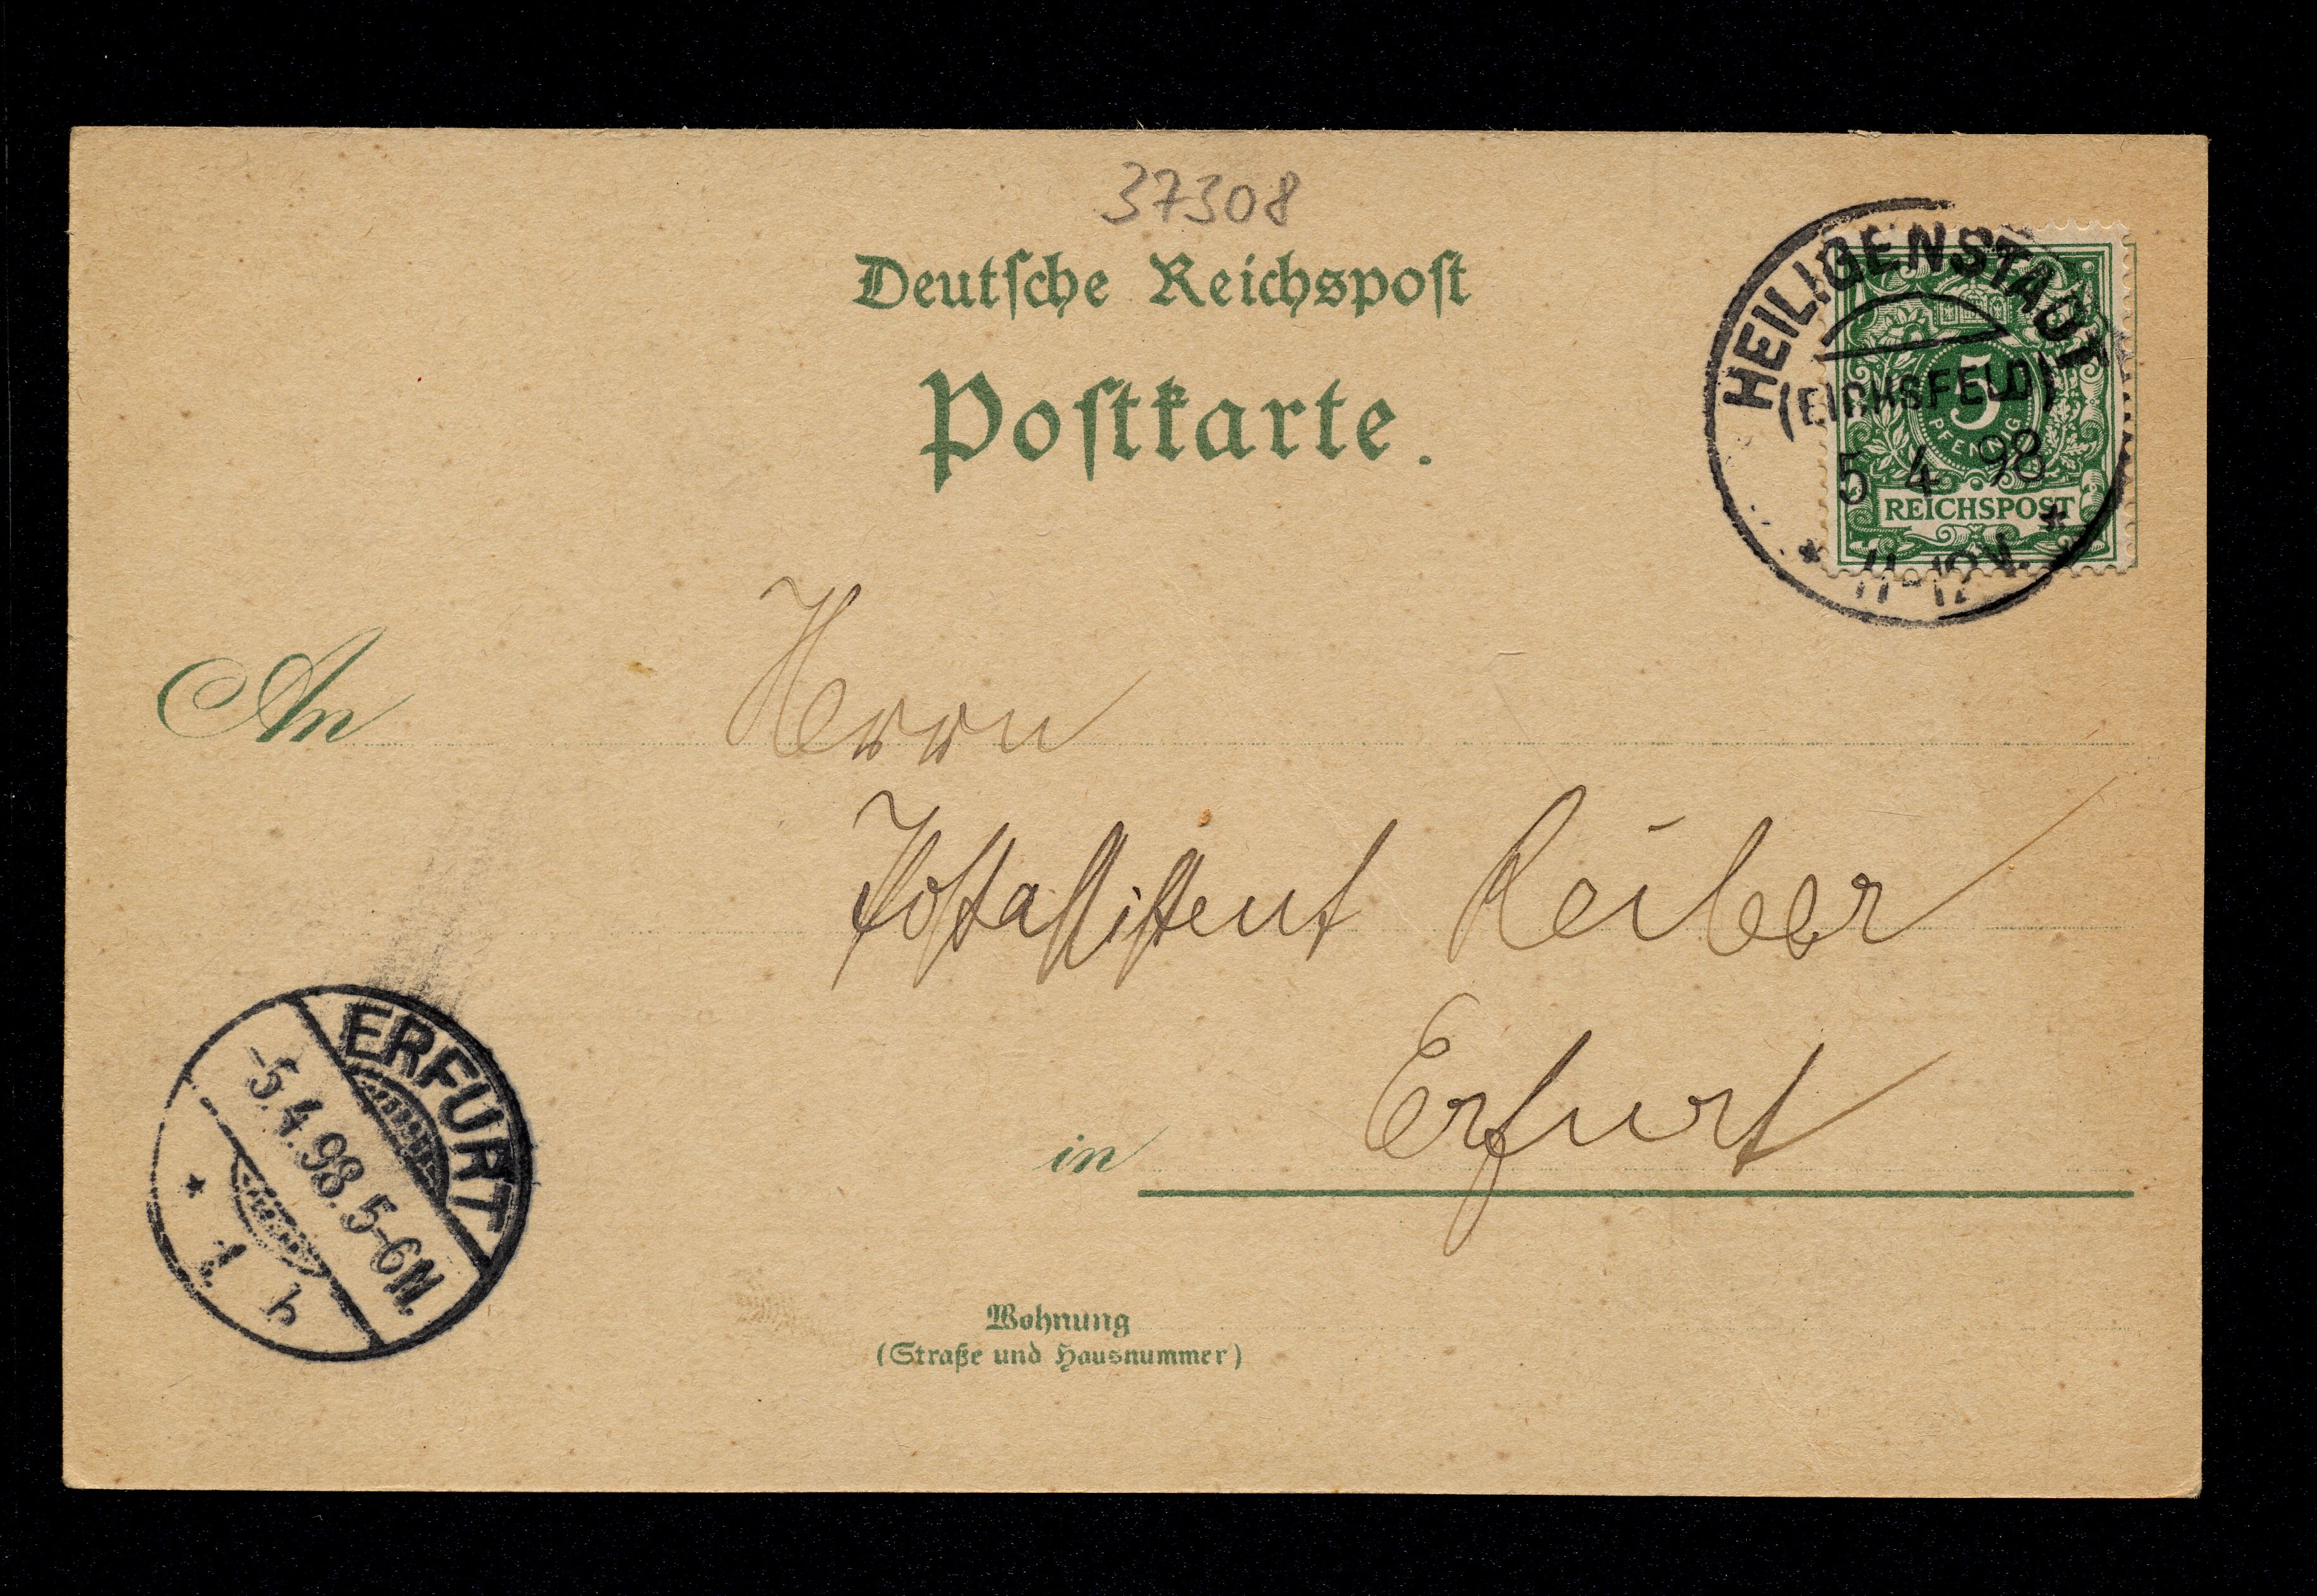 37308
Deutsche Reichspost
Postkarte.
HEILIGENSTADT
(EICHSFELD)
5 4 98
* 11-12V. *
5
PFENNIG
REICHSPOST
An Herrn
Postassistent Reiber
in Erfurt
ERFURT
-5.4.98.5-6N.
* 1. h
Wohnung
(Straße und Hausnummer)